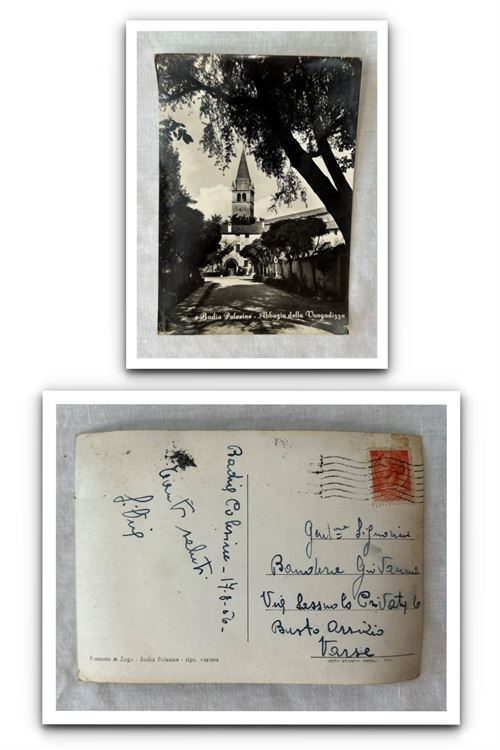 Badia Polesine - Abbazia della Vangadizza
Badia Polesine - 17.8.56 -
Tanti saluti
Gent.me Signorine
Giovanna
Via Lessolo Privata 6
Busto Arsizio
Varese
Zago - Badia Polesine - ripr. vietata